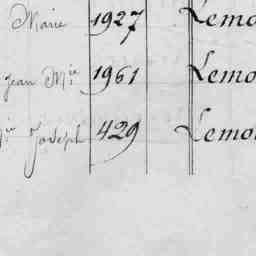 Marie 1927 Lemo
Jean Mie 1961 Lemo
Joseph 429 Lemo